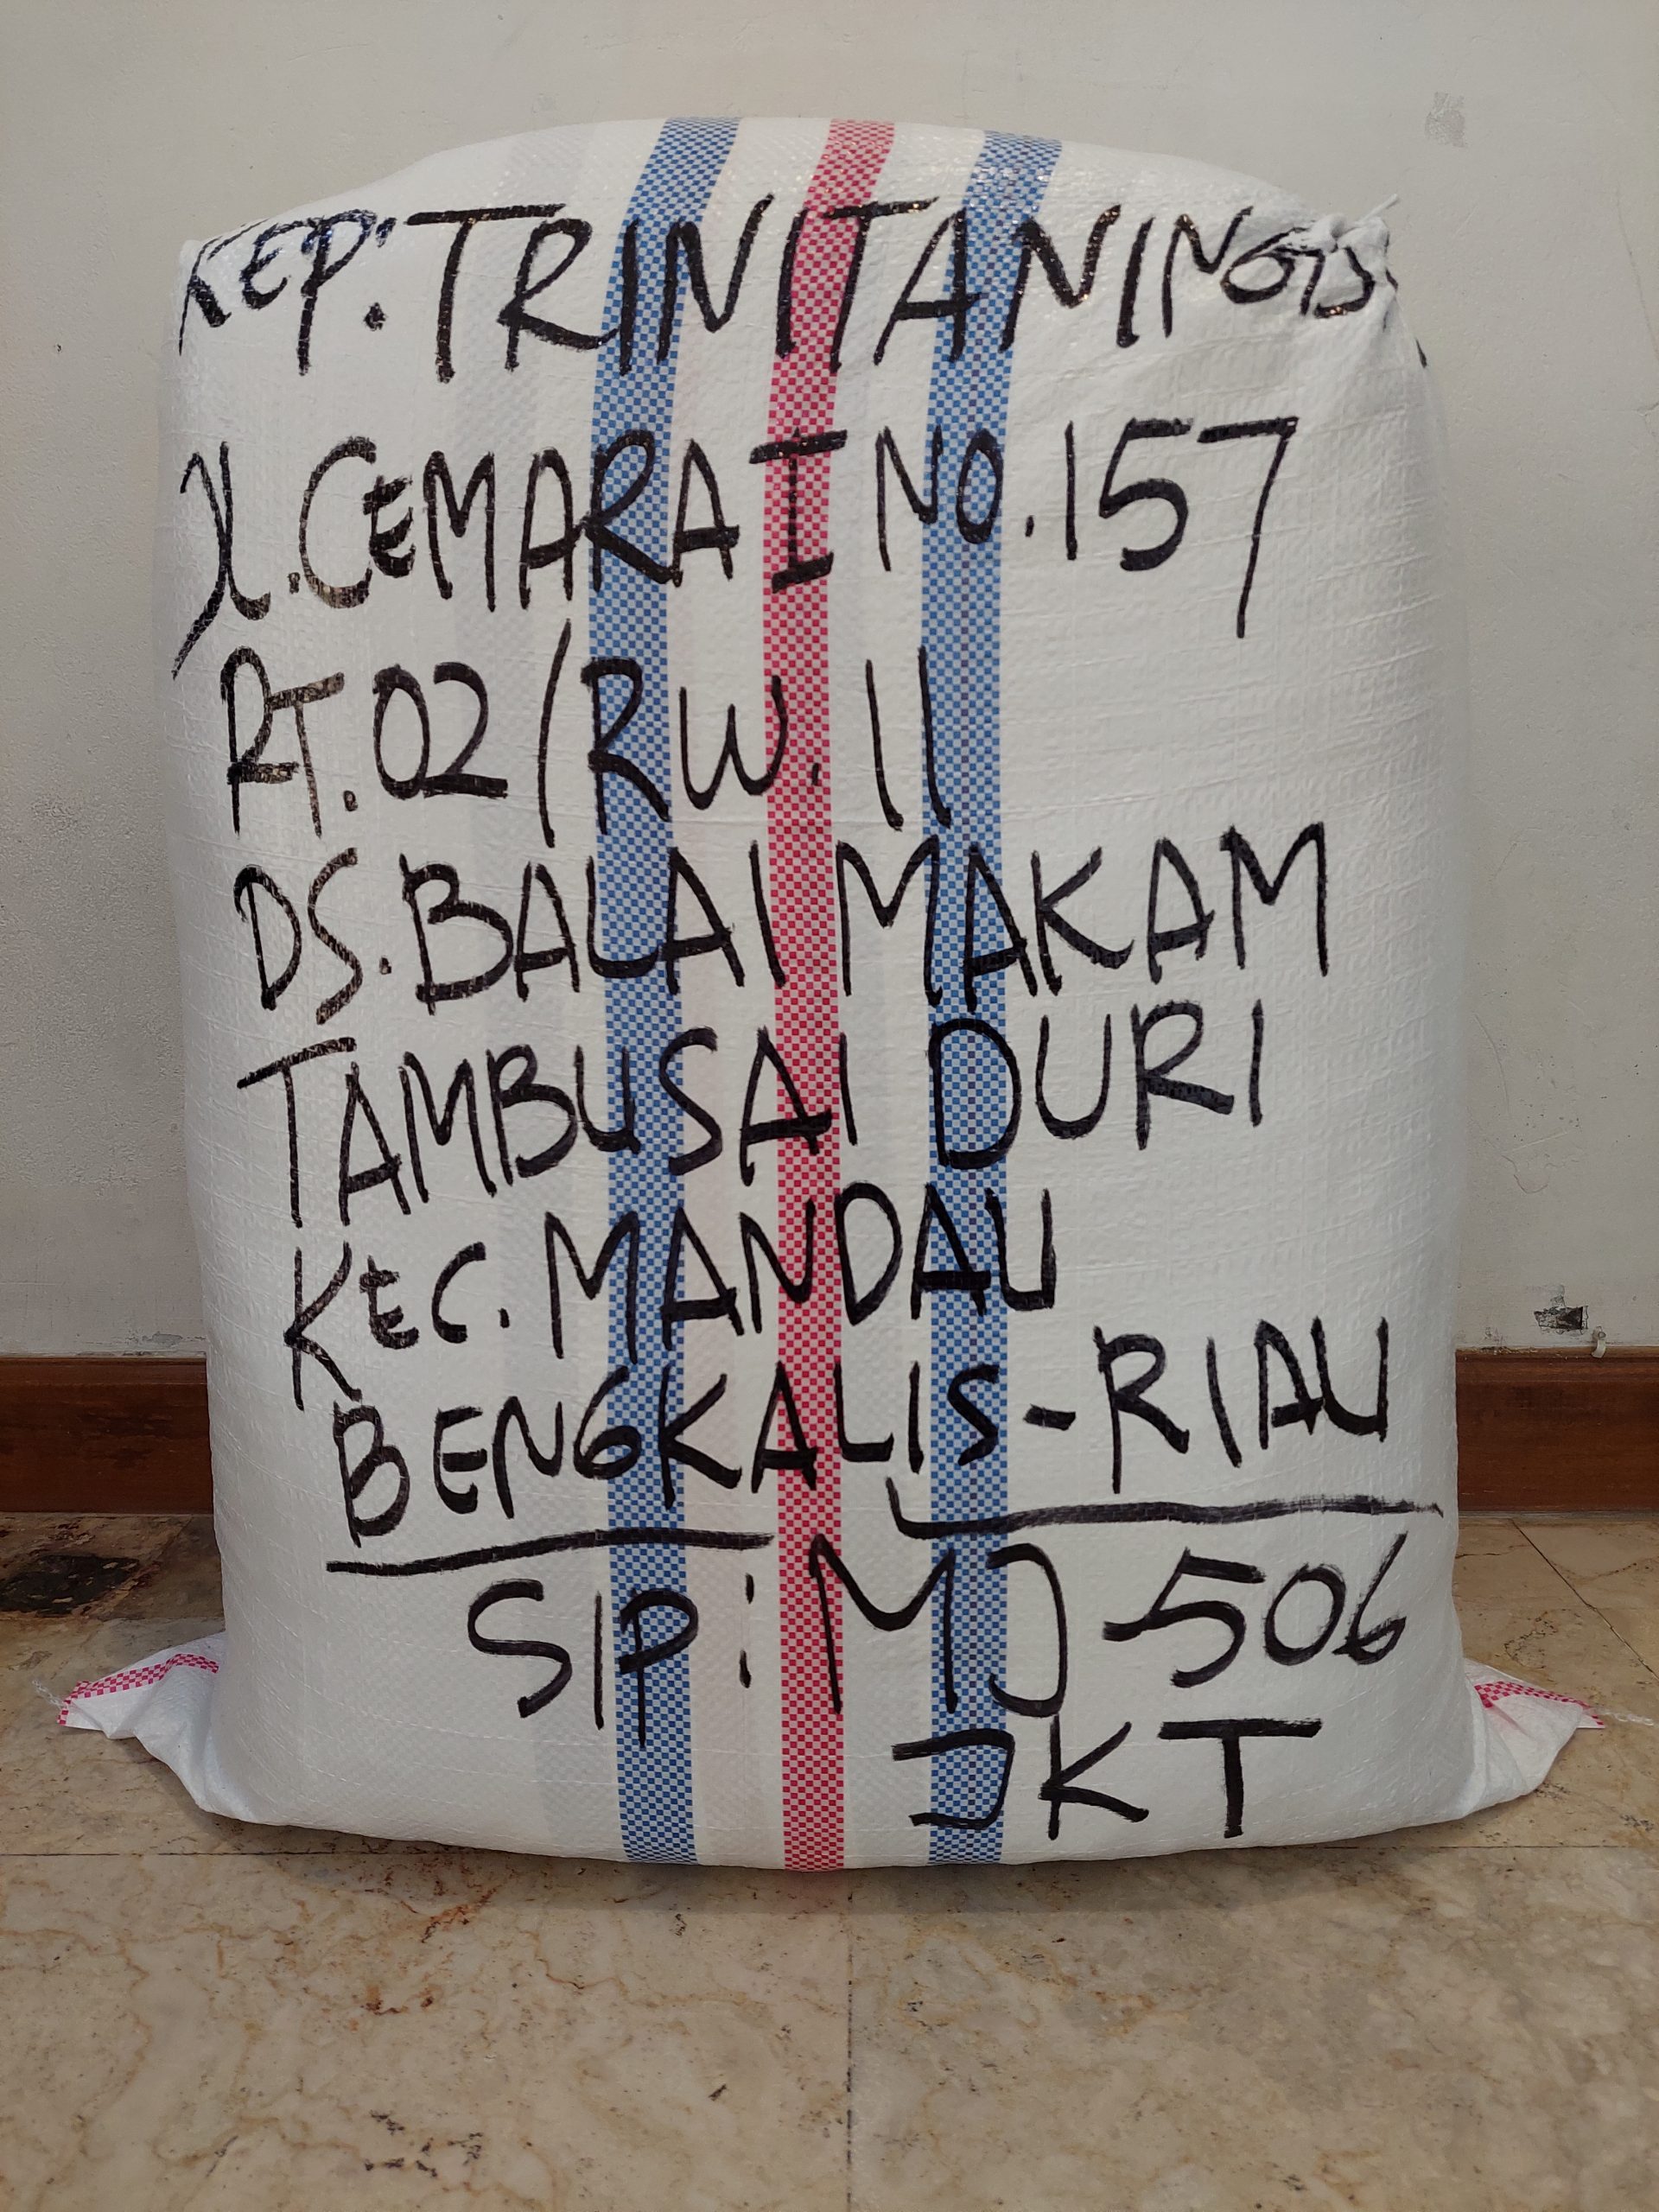 KEP: TRINITANINGTS
Jl. CEMARA I NO. 157
RT. 02 / RW. 11
DS. BALAI MAKAM
TAMBUSAI DURI
KEC. MANDAU
BENGKALIS - RIAU
SIP: MJ-506
JKT